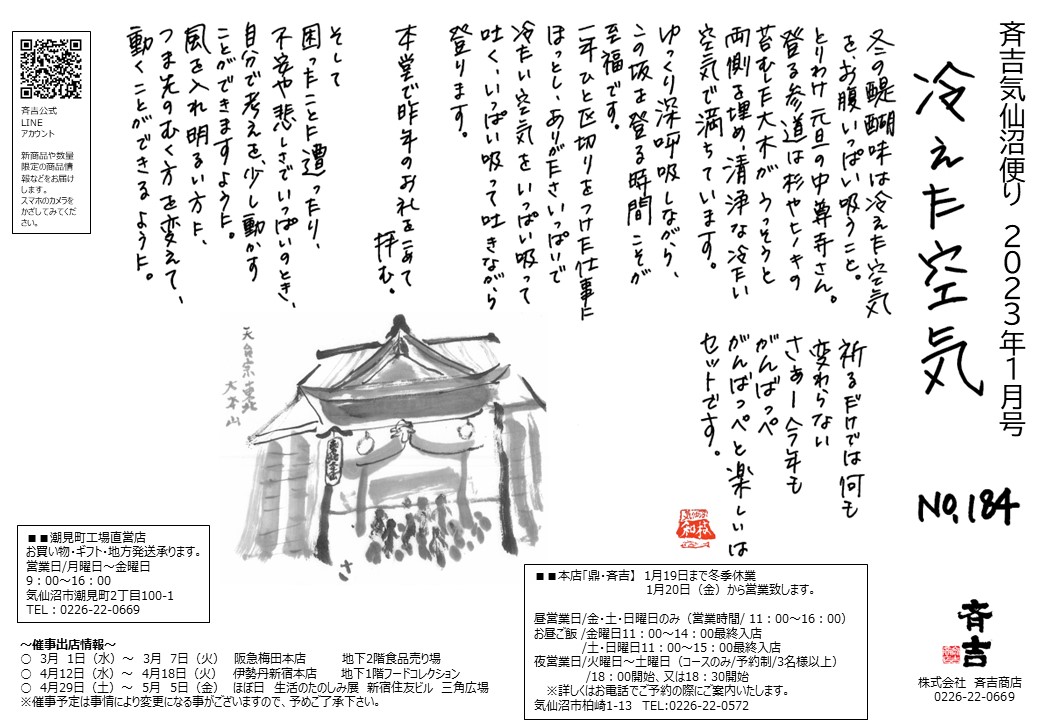 斉吉気仙沼便り 2023年1月号
冷えた空気
NO.184
冬の醍醐味は冷えた空気
を、お腹いっぱい吸うこと。
とりわけ元旦の中尊寺さん。
登る参道は杉やヒノキの
苔むした大木がうっそうと
両側を埋め、清浄な冷たい
空気で満ちています。
ゆっくり深呼吸しながら、
この坂を登る時間こそが
至福です。
一年ひと区切りをつけた仕事に
ほっとし、ありがたさいっぱいで
冷たい空気をいっぱい吸って
吐く、いっぱい吸って吐きながら
登ります。
本堂で昨年のお礼をこめて
拝む。
そして
困ったことに遭ったり、
不安や悲しさでいっぱいのとき、
自分で考えを、少し動かす
ことができますように。
風を入れ明るい方に、
つま先のむく方を変えて、
動くことができるように。
祈るだけでは何も
変わらない
さぁー今年も
がんばっぺ
がんばっぺと楽しいは
セットです。
和枝
天台宗東北
大本山
さ
斉吉公式
LINE
アカウント
新商品や数量
限定の商品情
報などをお届け
します。
スマホのカメラを
かざしてみてくだ
さい。
■■潮見町工場直営店
お買い物・ギフト・地方発送承ります。
営業日/月曜日～金曜日
9：00～16：00
気仙沼市潮見町2丁目100-1
TEL：0226-22-0669
～催事出店情報～
○ 3月 1日（水）～ 3月 7日（火） 阪急梅田本店 地下2階食品売り場
○ 4月12日（水）～ 4月18日（火） 伊勢丹新宿本店 地下1階フードコレクション
○ 4月29日（土）～ 5月 5日（金） ほぼ日 生活のたのしみ展 新宿住友ビル 三角広場
※催事予定は事情により変更になる事がございますので、予めご了承下さい。
■■本店「鼎・斉吉】 1月19日まで冬季休業
1月20日（金）から営業致します。
昼営業日/金・土・日曜日のみ（営業時間/ 11：00～16：00）
お昼ご飯 /金曜日11：00～14：00最終入店
/土・日曜日11：00～15：00最終入店
夜営業日/火曜日～土曜日（コースのみ/予約制/3名様以上）
/18：00開始、又は18：30開始
※詳しくはお電話でご予約の際にご案内いたします。
気仙沼市柏崎1-13 TEL:0226-22-0572
斉吉
株式会社 斉吉商店
0226-22-0669